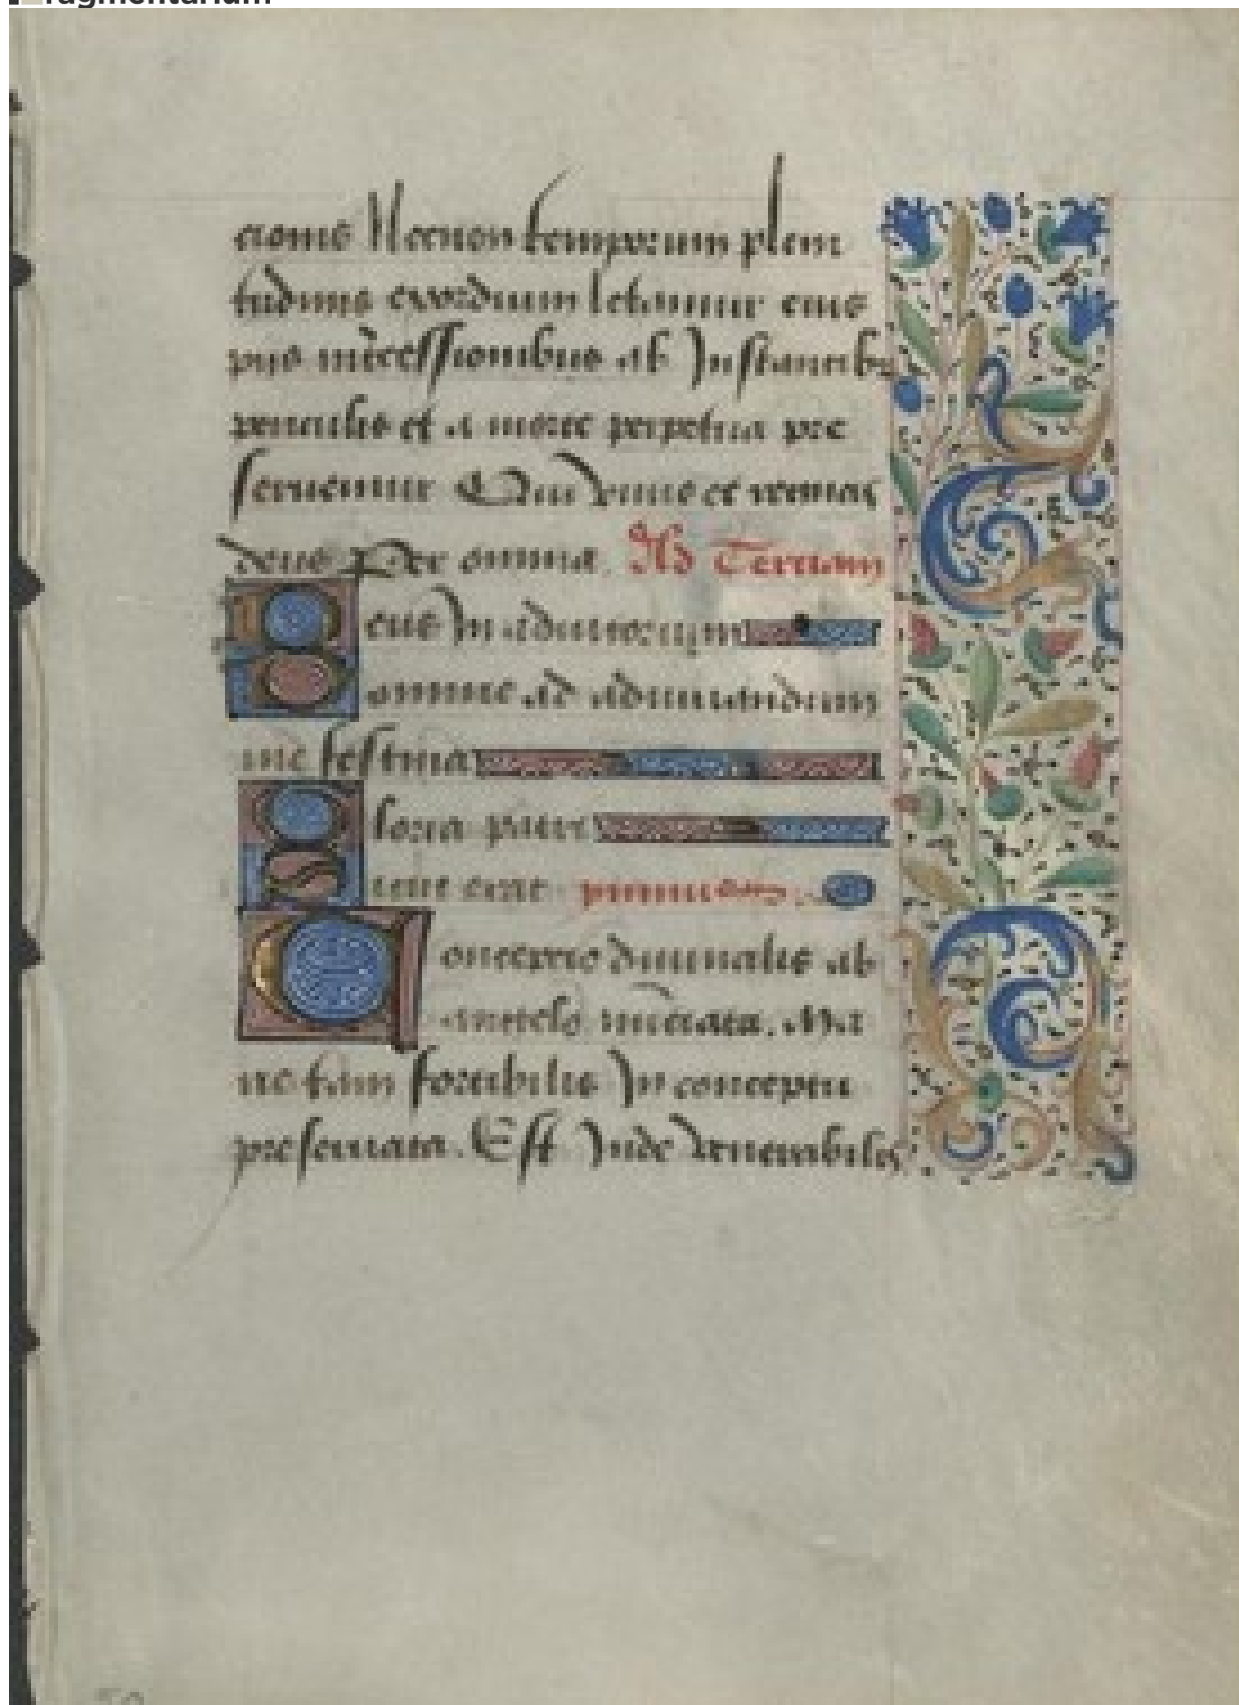 ragmentarium
cionis Necnon temporum pleni
tudinis exordium letamur eius
piis intercessionibus ab Instantib
periculis et a morte perpetua pre
seruemur Qui viuis et regnas
deus Per omnia. Ad Terciam
eus In adiutorium
omine ad adiuuandum
me festina
loria patri
icut erat
onceptio virginalis ab
angelo nunciata. Ma
in conceptu
preseruata. Est Inde venerabilis